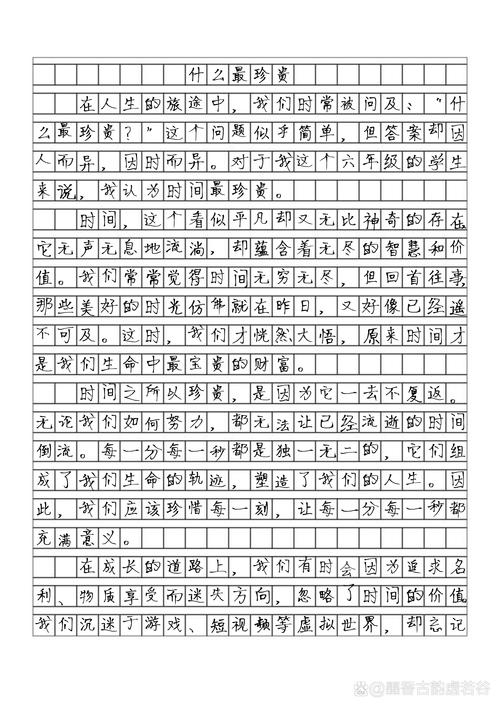 什么最珍贵
在人生的旅途中，我们时常被问及："什
么最珍贵？"这个问题似乎简单，但答案却因
人而异，因时而异。对于我这个六年级的学生
来说，我认为时间最珍贵。
时间，这个看似平凡却又无比神奇的存在
它无声无息地流淌，却蕴含着无尽的智慧和价
值。我们常常觉得时间无穷无尽，但回首往事
那些美好的时光仿佛就在昨日，又好像已经遥
不可及。这时，我们才恍然大悟，原来时间才
是我们生命中最宝贵的财富。
时间之所以珍贵，是因为它一去不复返。
无论我们如何努力，都无法让已经流逝的时间
倒流。每一分每一秒都是独一无二的，它们组
成了我们生命的轨迹，塑造了我们的人生。因
此，我们应该珍惜每一刻，让每一分每一秒都
充满意义。
在成长的道路上，我们有时会因为追求名
利、物质享受而迷失方向，忽略了时间的价值
我们沉迷于游戏、短视频等虚拟世界，却忘记